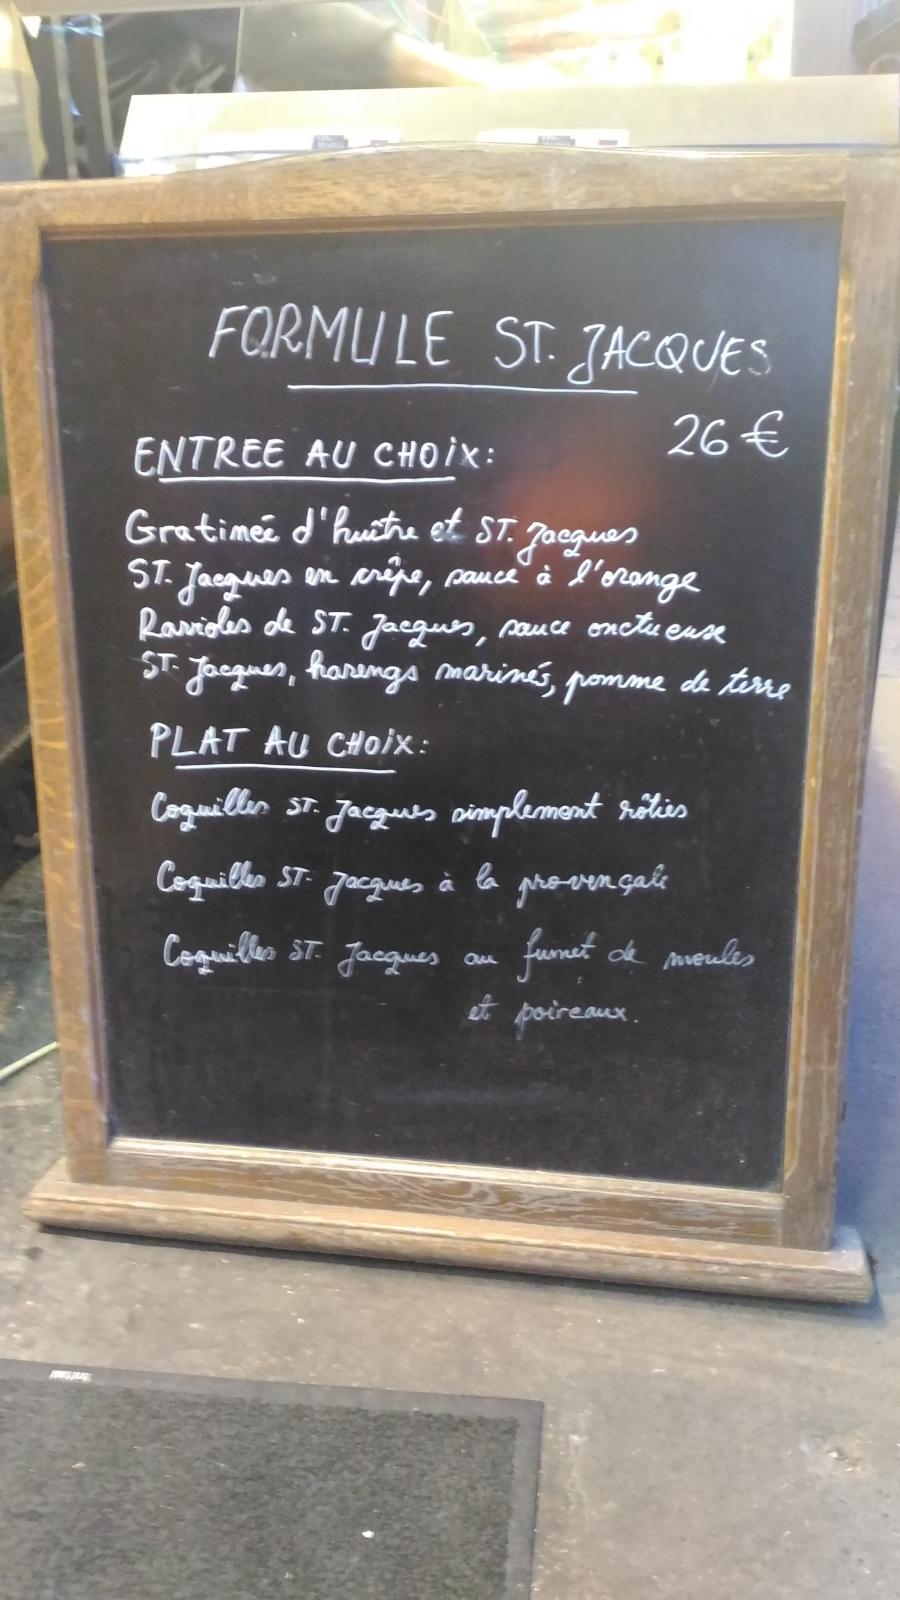 FORMULE ST. JACQUES
26 €
ENTREE AU CHOIX:
Gratineé d'huître et ST. Jacques
ST. Jacques en crêpe, sauce à l'orange
Ravioles de ST. Jacques, sauce onctueuse
ST. Jacques, harengs marinés, pomme de terre
PLAT AU CHOIX:
Coquilles ST. Jacques simplement rôties
Coquilles ST. Jacques à la provençale
Coquilles ST. Jacques au fumet de moules
et poireaux.